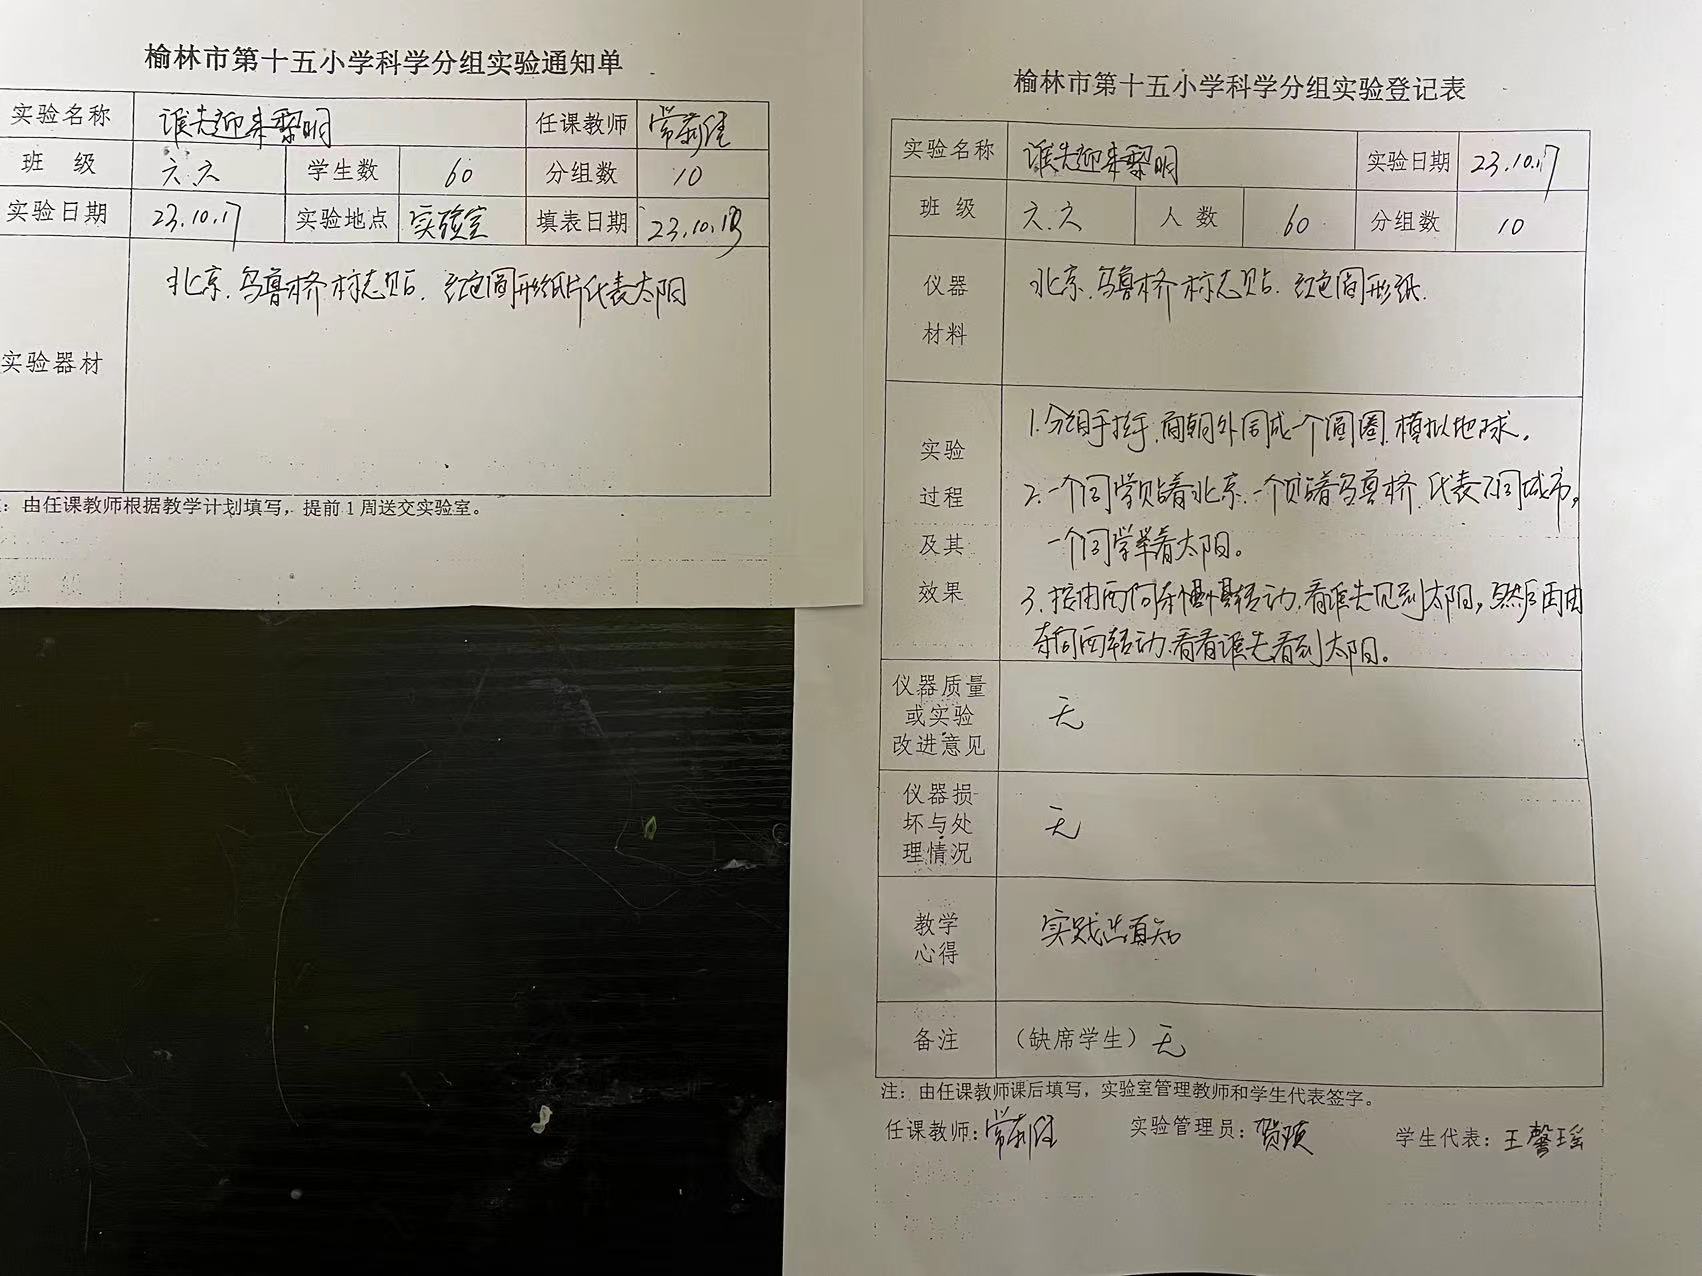 榆林市第十五小学科学分组实验通知单
实验名称 谁先迎来黎明 任课教师
班 级 六.六 学生数 60 分组数 10
实验日期 23.10.17 实验地点 实验室 填表日期 23.10.13
实验器材 北京.乌鲁木齐标志贴.红色圆形纸片代表太阳
：由任课教师根据教学计划填写，提前1周送交实验室。
榆林市第十五小学科学分组实验登记表
实验名称 谁先迎来黎明 实验日期 23.10.17
班 级 六.六 人 数 60 分组数 10
仪器
材料
北京.乌鲁木齐标志贴.红色圆形纸.
实验
过程
及其
效果
1.分组手拉手.面朝外围成一个圆圈.模拟地球.
2.一个同学贴着北京.一个贴着乌鲁木齐.代表不同城市,
一个同学举着太阳。
3.按由西向东慢慢转动.看谁先见到太阳,然后再由
东向西转动.看看谁先看到太阳。
仪器质量
或实验
改进意见
无
仪器损
坏与处
理情况
无
教学
心得
实践出真知
备注 （缺席学生）无
注：由任课教师课后填写，实验室管理教师和学生代表签字。
任课教师： 实验管理员： 学生代表：王馨瑶